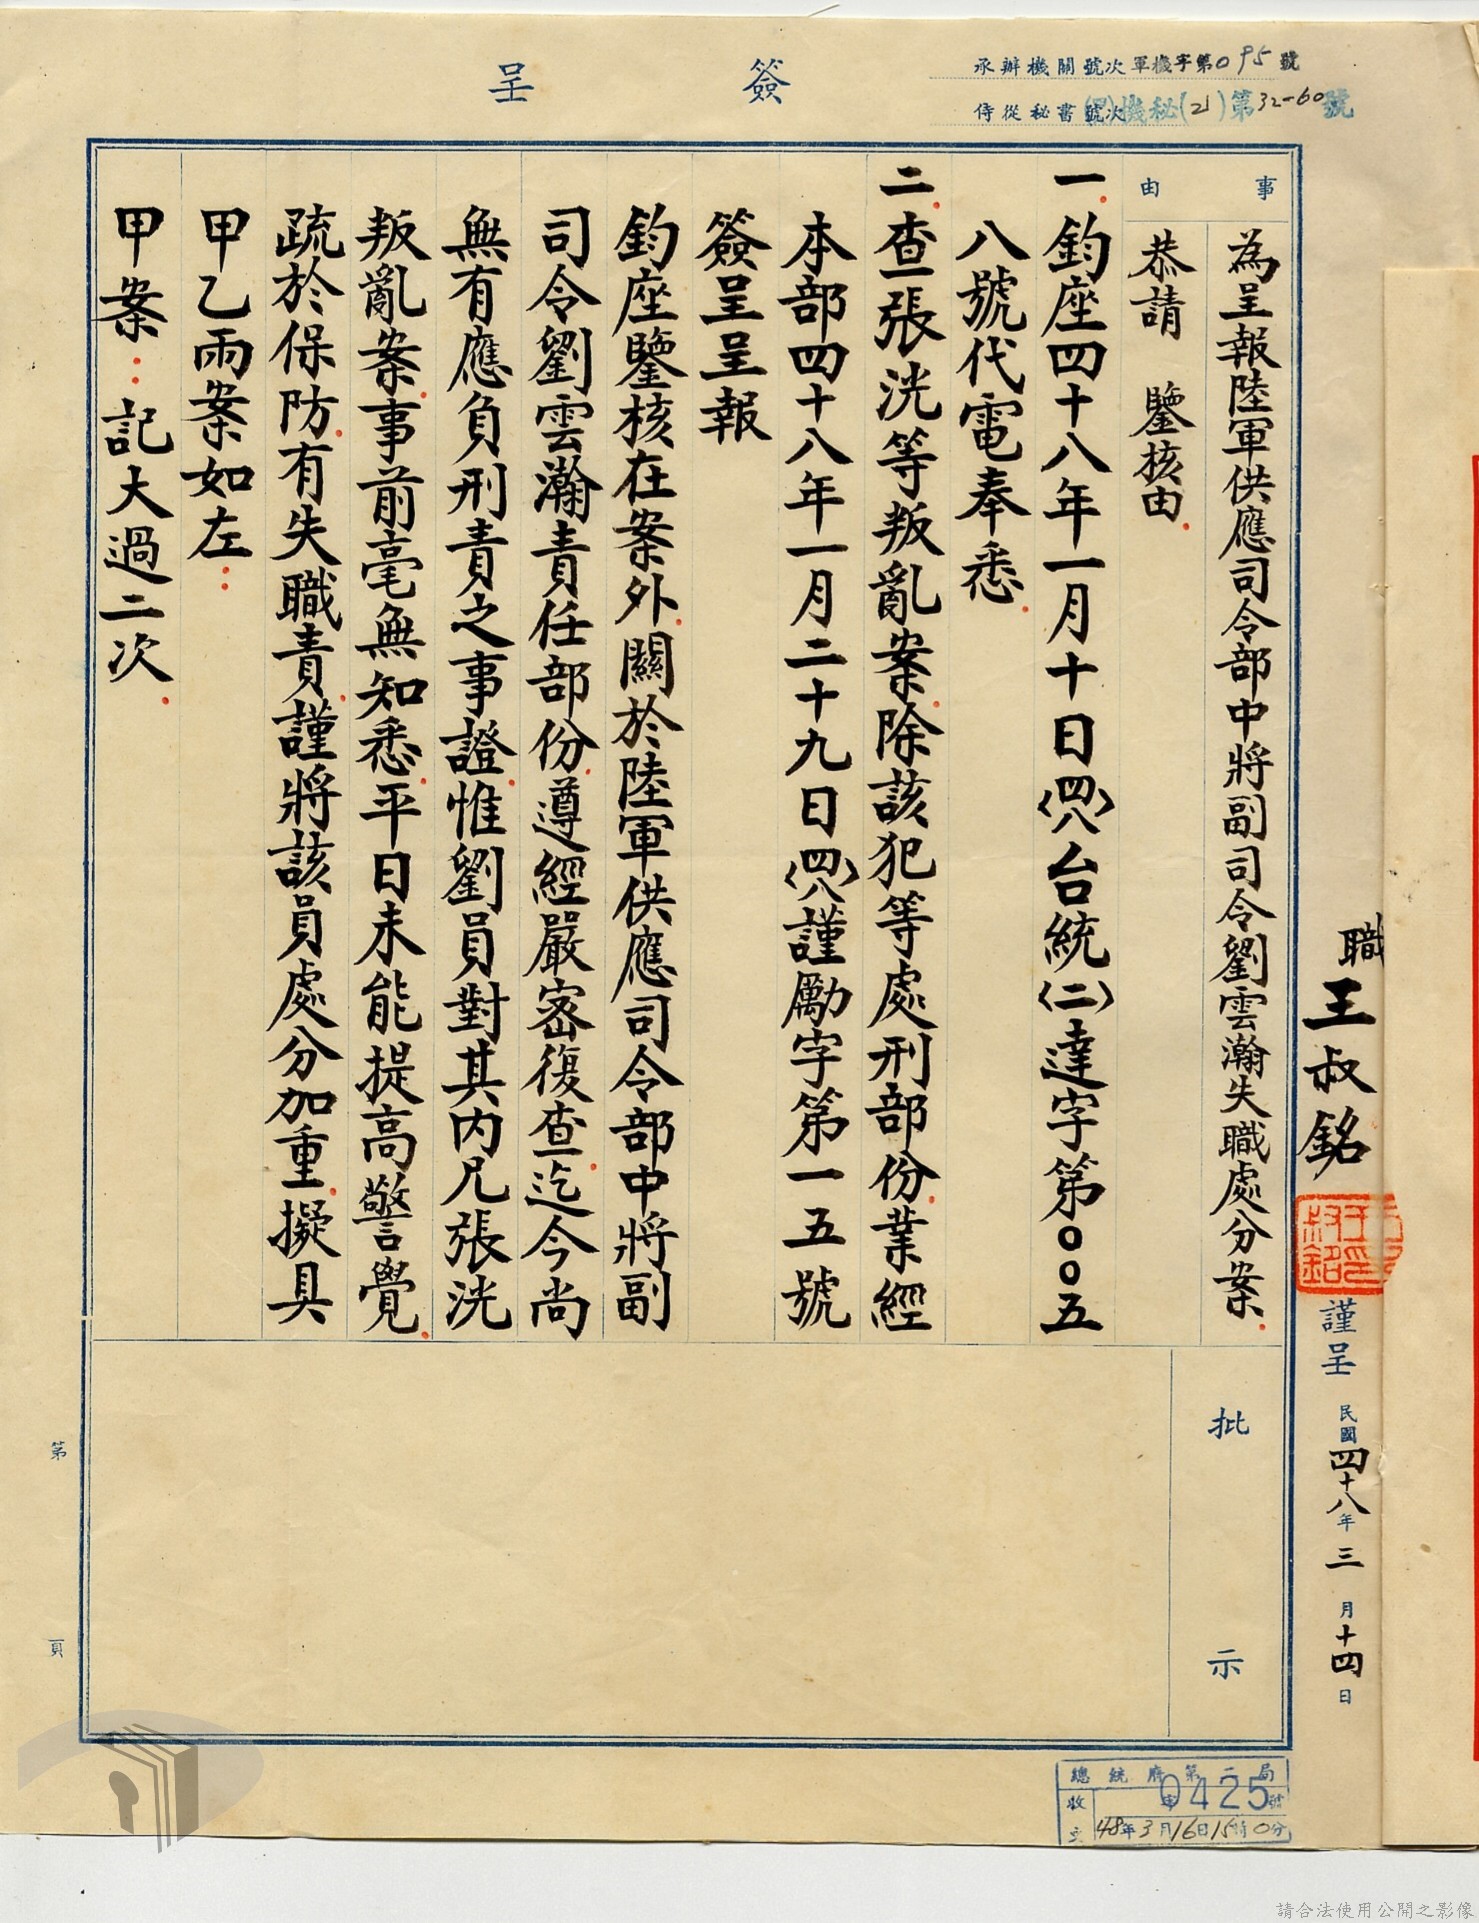 簽呈
承辦機關號次軍機字第095號
侍從秘書號次機秘(21)第32-60號
事由
為呈報陸軍供應司令部中將副司令劉雲瀚失職處分案
恭請　鑒核由
一鈞座四十八年一月十日〈四八〉台統〈二〉達字第００五
八號代電奉悉
二查張洸等叛亂案除該犯等處刑部份業經
本部四十八年一月二十九日〈四八〉謹勵字第一五號
簽呈呈報
鈞座鑒核在案外關於陸軍供應司令部中將副
司令劉雲瀚責任部份遵經嚴密復查迄今尚
無有應負刑責之事證惟劉員對其內兄張洸
叛亂案事前毫無知悉平日未能提高警覺
疏於保防有失職責謹將該員處分加重擬具
甲乙兩案如左：
甲案：記大過二次
批示
職王叔銘
謹呈
民國四十八年三月十四日
第　頁
總統府第二局
收文0425號
48年3月16日15時0分
請合法使用公開之影像